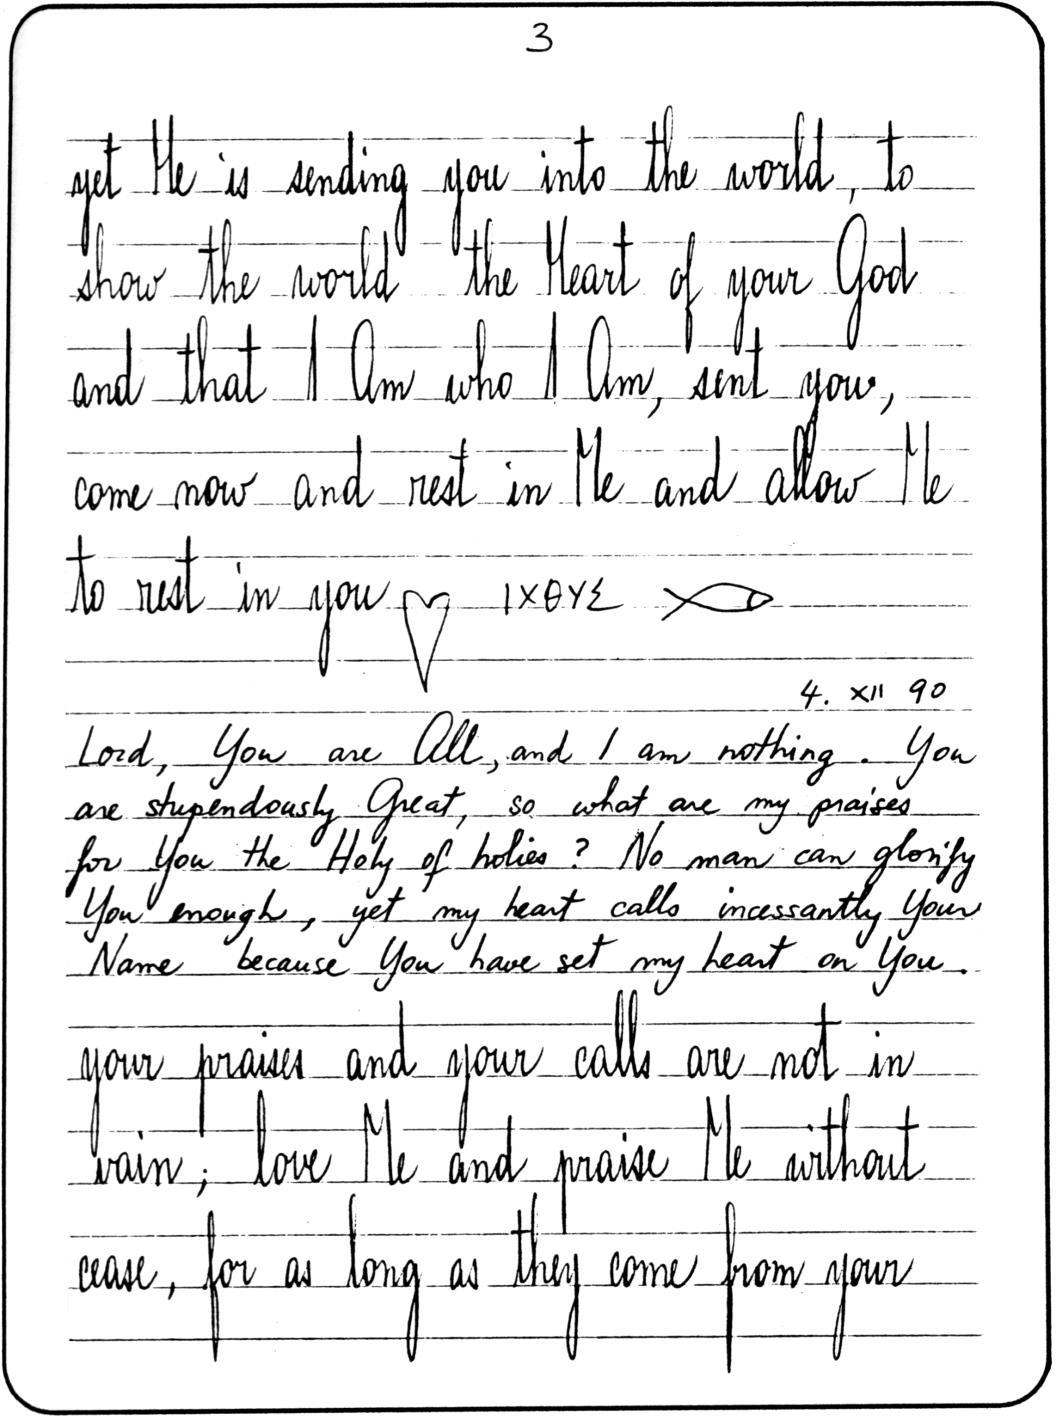 3
yet He is sending you into the world, to
show the world the Heart of your God
and that I Am who I Am, sent you,
come now and rest in Me and allow Me
to rest in you ♡ ΙΧΘΥΣ
4. XII 90
Lord, You are All, and I am nothing. You
are stupendously Great, so what are my praises
for You the Holy of holies? No man can glorify
You enough, yet my heart calls incessantly Your
Name because You have set my heart on You.
your praises and your calls are not in
vain; love Me and praise Me without
cease, for as long as they come from your